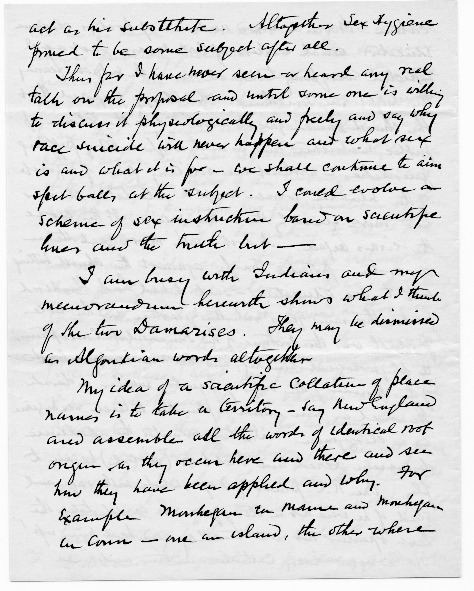 act as his substitute. Altogether Sex Hygiene
proved to be some subject after all.
Thus far I have never seen or heard any real
talk on the proposal and until some one is willing
to discuss it physiologically and freely and say why
race suicide will never happen and what sex
is and what it is for - we shall continue to aim
spit balls at the subject. I could evolve a
scheme of sex instruction based on scientific
lines and the truth but —
I am busy with Indians and my
memorandum herewith shows what I think
of the two Damarises. They may be dismissed
as Algonkian words altogether
My idea of a scientific collation of place
names is to take a territory - say New England
and assemble all the words of identical root
origin as they occur here and there and see
how they have been applied and why. For
Example Monhegan in Maine and Monhegan
in Conn - one an island, the other where